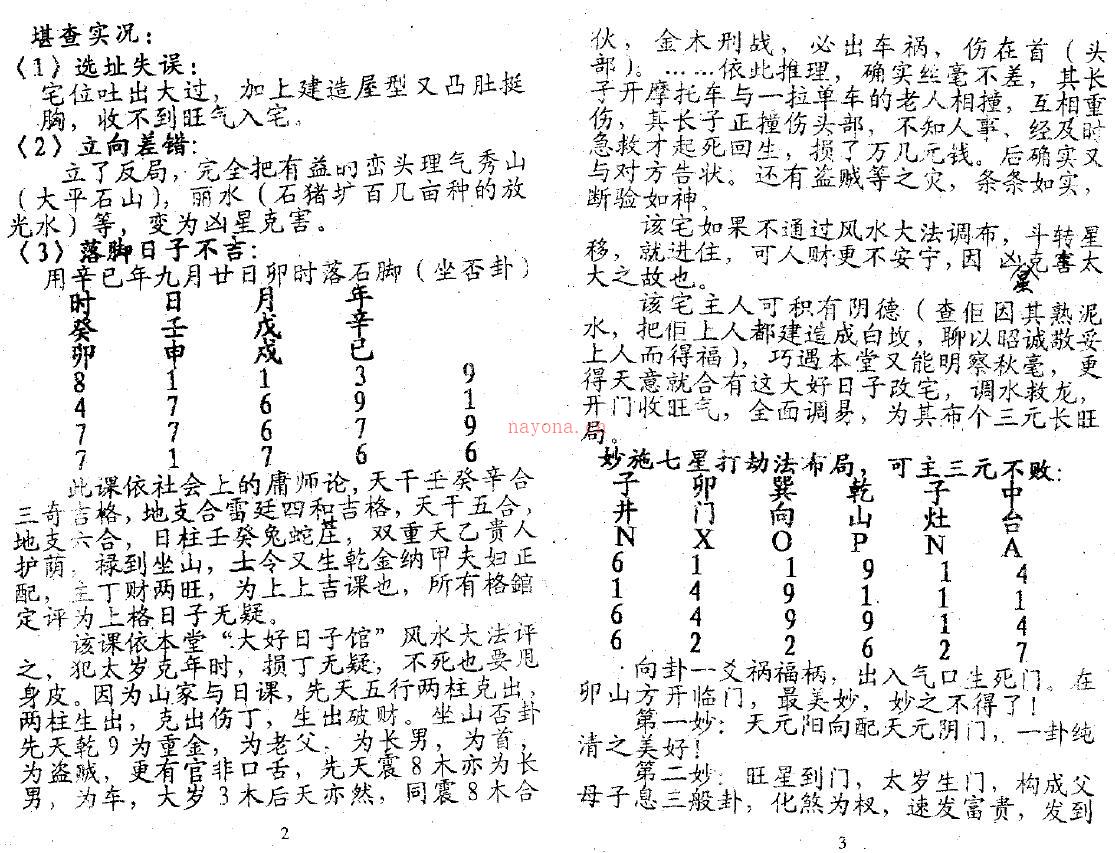 堪查实况：
（1）选址失误：
宅位吐出大过，加上建造屋型又凸肚挺
胸，收不到旺气入宅。
（2）立向差错：
立了反局，完全把有益的峦头理气秀山
（大平石山），丽水（石猪圹百几亩种的放
光水）等，变为凶星克害。
（3）落脚日子不吉：
用辛巳年九月廿日卯时落石脚（坐否卦）
时 日 月 年
癸 壬 戊 辛
卯 申 戌 巳
8 1 1 3 9
4 7 6 9 1
7 7 6 7 9
7 1 7 6 6
此课依社会上的庸师论，天干壬癸辛合
三奇吉格，地支合雷廷四和吉格，天干五合，
地支六合，日柱壬癸兔蛇茳，双重天乙贵人
护荫，禄到坐山，士令又生乾金纳甲夫妇正
配，主丁财两旺，为上上吉课也，所有格錧
定评为上格日子无疑。
该课依本堂“大好日子馆”风水大法评
之，犯太岁克年时，损丁无疑，不死也要甩
身皮。因为山家与日课，先天五行两柱克出，
两柱生出，克出伤丁，生出破财。坐山否卦
先天乾9为重金，为老父，为长男，为首，
为盗贼，更有官非口舌，先天震8木亦为长
男，为车，大岁3木后天亦然，同震8木合
2
伙，金木刑战，必出车祸，伤在首（头
部）。……依此推理，确实丝毫不差，其长
子开摩托车与一拉单车的老人相撞，互相重
伤，其长子正撞伤头部，不知人事、经及时
急救才起死回生，损了万几元钱。后确实又
与对方告状。还有盗贼等之灾，条条如实，
断验如神。
该宅如果不通过风水大法调布，斗转星
移，就进住，可人财更不安宁，因凶星克害太
大之故也。
该宅主人可积有阴德（查佢因其熟泥
水，把佢上人都建造成白坟，聊以昭诚敬妥
上人而得福），巧遇本堂又能明察秋毫，更
得天意就合有这大好日子改宅，调水救龙，
开门收旺气，全面调易，为其布个三元长旺
局。
nayona.cn
妙施七星打劫法布局，可主三元不败：
子 卯 巽 乾 子 中
井 门 向 山 灶 台
N X O P N A
6 1 1 9 1 4
1 4 9 1 1 1
6 4 9 9 1 4
6 2 2 6 2 7
向卦一爻祸福柄，出入气口生死门。在
卯山方开临门，最美妙，妙之不得了！
第一妙：天元阳向配天元阴门，一卦纯
清之美好！
第二妙：旺星到门，太岁生门，构成父
母子息三般卦，化煞为权，速发富贵，发到
3